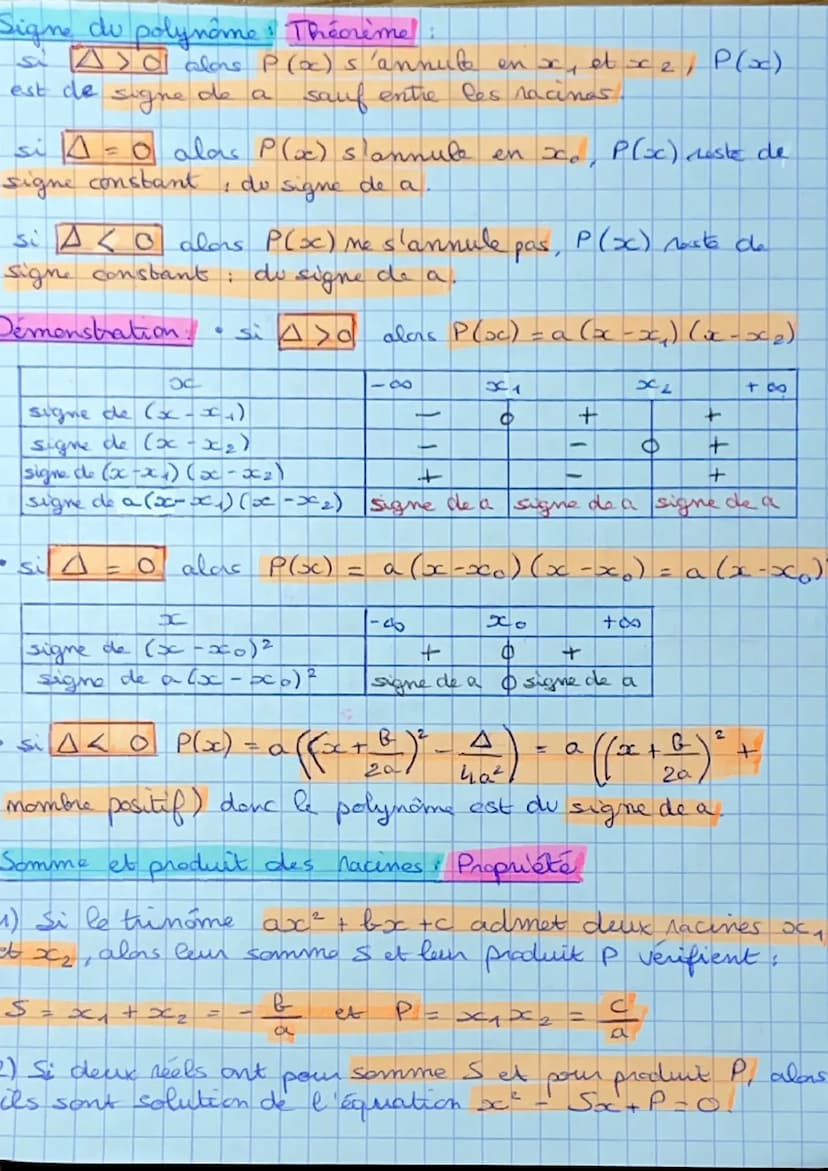 Signe du polynôme : Théorème :
si Δ > 0 alors P(x) s'annule en x₁ et x₂, P(x)
est de signe de a sauf entre les racines.
si Δ = 0 alors P(x) s'annule en x₀, P(x) reste de
signe constant : du signe de a.
si Δ < 0 alors P(x) ne s'annule pas, P(x) reste de
signe constant : du signe de a.
Démonstration : • si Δ > 0 alors P(x) = a(x - x₁)(x - x₂)
x -∞ x₁ x₂ +∞
signe de (x - x₁) - 0 + +
signe de (x - x₂) - - 0 +
signe de (x - x₁)(x - x₂) + - +
signe de a(x - x₁)(x - x₂) signe de a signe de a signe de a
• si Δ = 0 alors P(x) = a(x - x₀)(x - x₀) = a(x - x₀)
x -∞ x₀ +∞
signe de (x - x₀)² + 0 +
signe de a(x - x₀)² signe de a 0 signe de a
• si Δ < 0 P(x) = a((x + b/2a)² - Δ/4a²) = a((x + b/2a)² +
nombre positif) donc le polynôme est du signe de a.
Somme et produit des racines : Propriété
1) Si le trinôme ax² + bx + c admet deux racines x₁
et x₂, alors leur somme S et leur produit P vérifient :
S = x₁ + x₂ = - b/a et P = x₁x₂ = c/a
2) Si deux réels ont pour somme S et pour produit P, alors
ils sont solution de l'équation x² - Sx + P = 0.